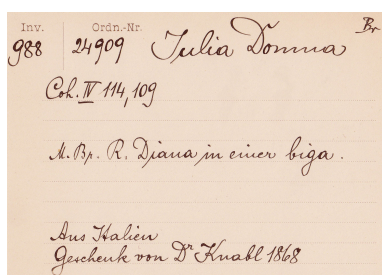 Inv. Ordn.-Nr. Br
988 24909 Julia Domna
Coh. IV 114, 109
M. Br. R. Diana in einer biga.
Aus Italien
Geschenk von Dr Knabl 1868